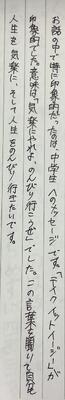 お話の中で特に印象的だったのは、中学生へのメッセージです。「テイクイットイージー」が
印象的でした。意味は「気楽にやれよ、のんびり行こうぜ」でした。この言葉を聞いて自分も
人生を気楽に、そして人生をのんびり行きたいです。